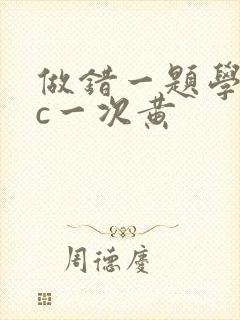 做錯一題學
c一次黃
周德慶